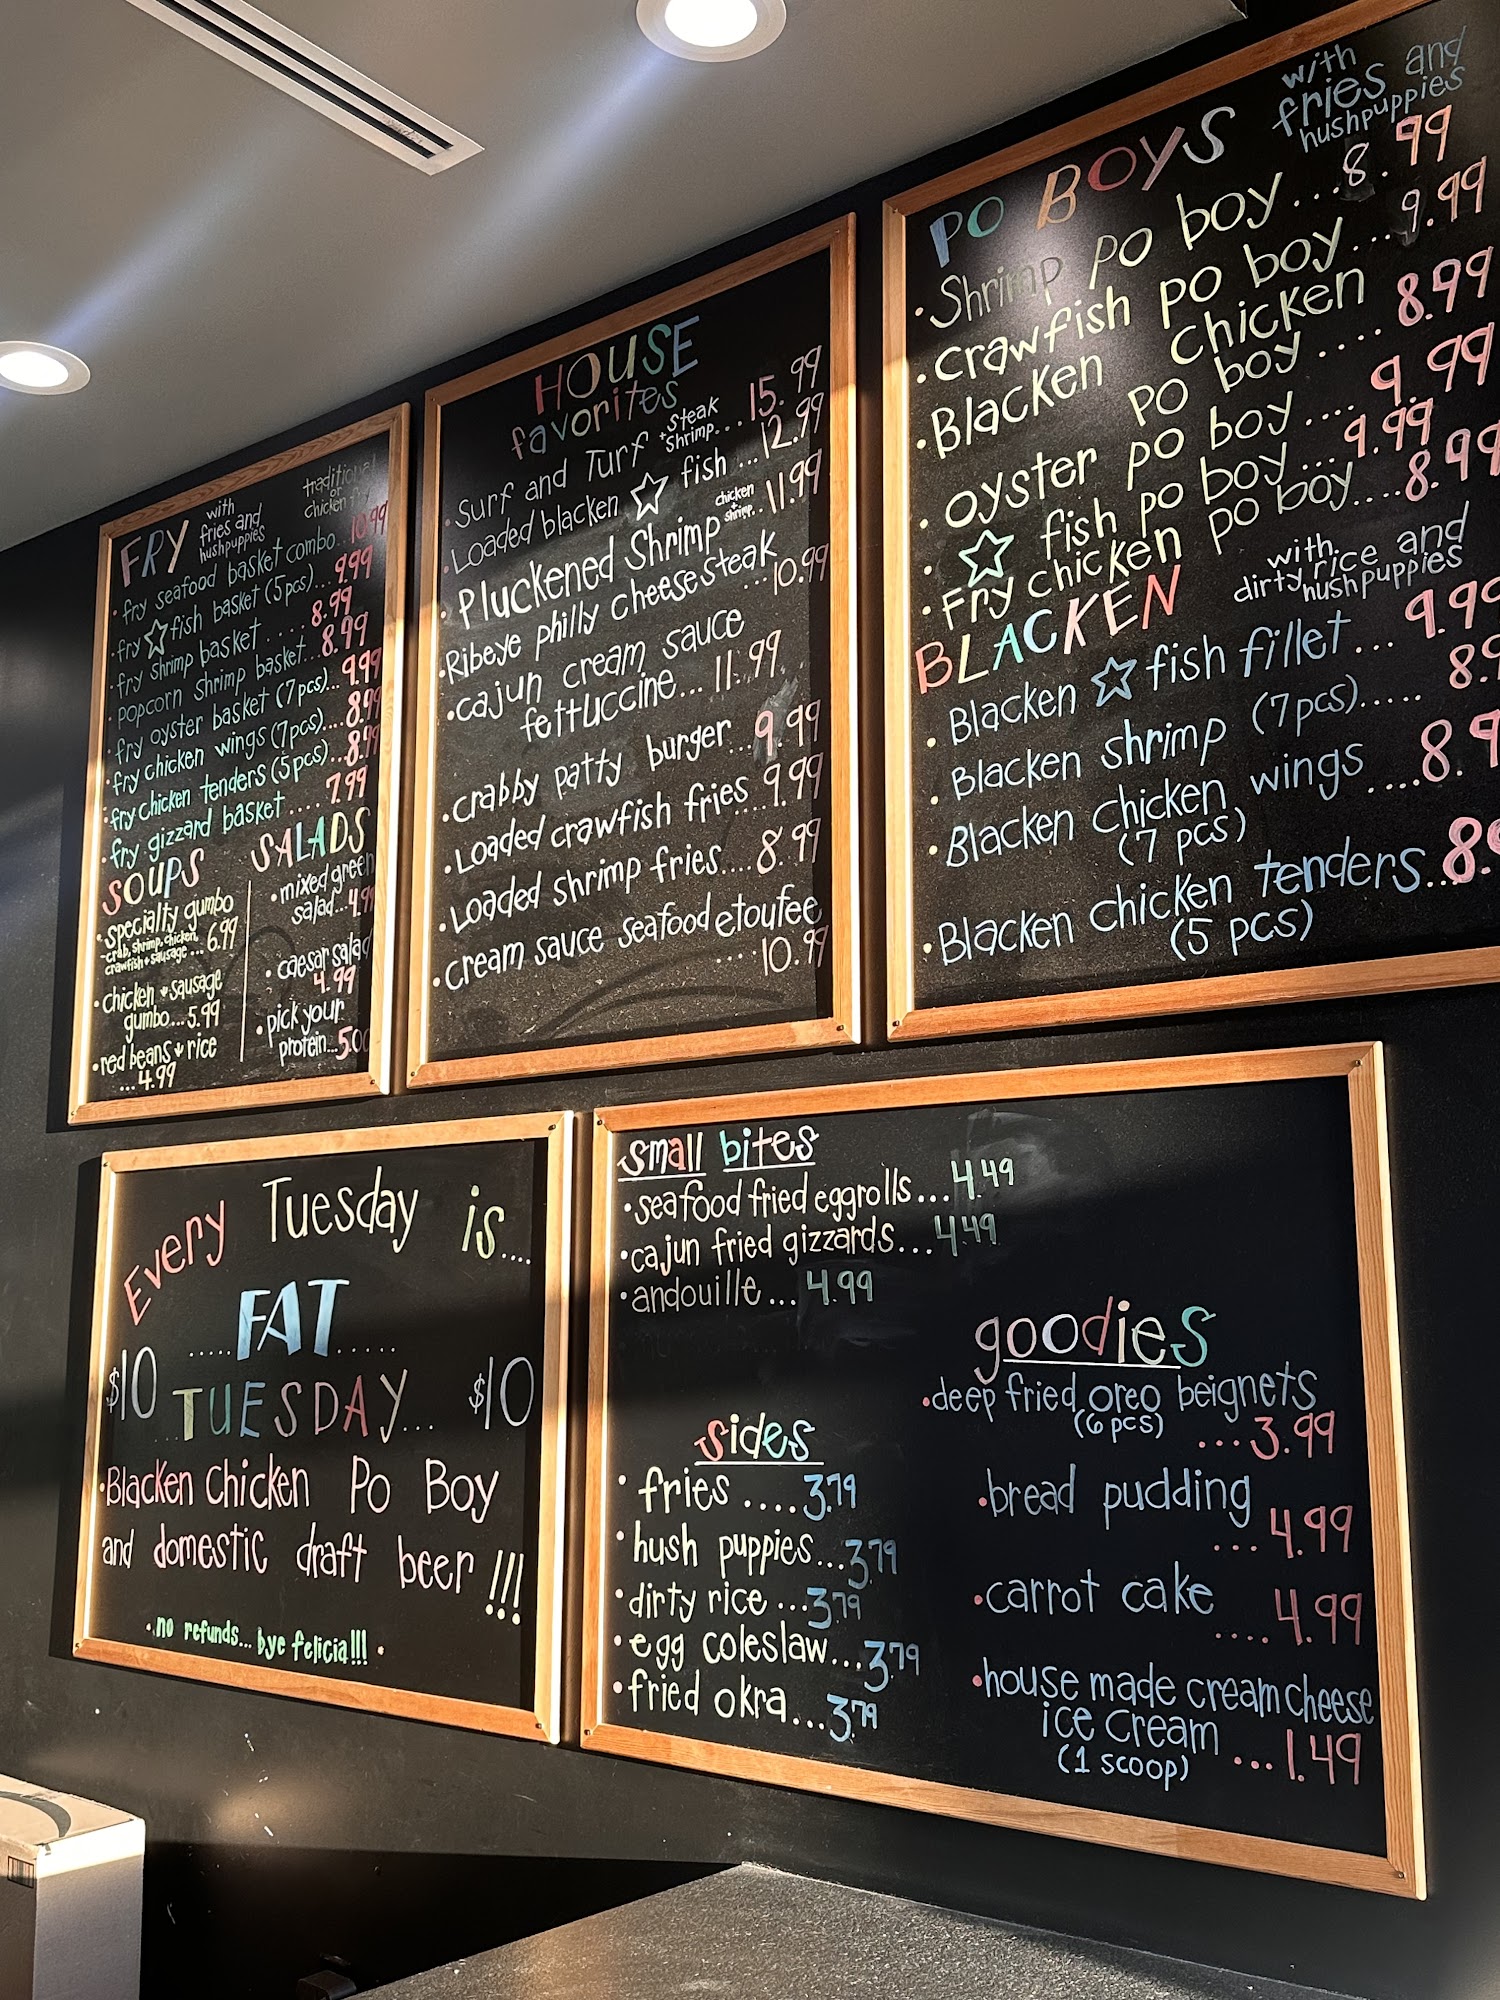 FRY
with
fries and
hushpuppies
traditional
or
chicken fry
·fry seafood basket combo..10.99
·fry ☆ fish basket (5pcs)...9.99
·fry shrimp basket.....8.99
·popcorn shrimp basket...8.99
·fry oyster basket (7pcs)...9.99
·fry chicken wings (7pcs)...8.99
·fry chicken tenders (5pcs)...8.99
·fry gizzard basket.....7.99
SOUPS
·specialty gumbo
-crab, shrimp, chicken,
crawfish + sausage...6.99
·chicken + sausage
gumbo...5.99
·red beans + rice
...4.99
SALADS
·mixed green
salad...4.99
·caesar salad
4.99
·pick your
protein...5.00
HOUSE
favorites
·Surf and Turf +steak
+shrimp...15.99
·Loaded blacken ☆ fish...12.99
·Pluckened Shrimp chicken
+shrimp...11.99
·Ribeye philly cheesesteak
...10.99
·cajun cream sauce
fettuccine...11.99
·crabby patty burger...9.99
·Loaded crawfish fries...9.99
·Loaded shrimp fries....8.99
·cream sauce seafood etoufee
....10.99
PO BOYS
with
fries and
hushpuppies
·Shrimp po boy...8.99
·crawfish po boy...9.99
·Blacken chicken
po boy....8.99
·oyster po boy....9.99
·☆ fish po boy...9.99
·Fry chicken po boy....8.99
BLACKEN
with
dirty rice and
hushpuppies
·Blacken ☆ fish fillet...9.99
·Blacken shrimp (7pcs).....8.9
·Blacken chicken wings....8.9
(7 pcs)
·Blacken chicken tenders...8.9
(5 pcs)
Every Tuesday is....
.....FAT.....
$10 ...TUESDAY... $10
·Blacken Chicken Po Boy
and domestic draft beer !!!
·no refunds... bye felicia!!!·
small bites
·seafood fried eggrolls...4.49
·cajun fried gizzards...4.49
·andouille...4.99
sides
·fries....3.79
·hush puppies...3.79
·dirty rice...3.79
·egg coleslaw...3.79
·fried okra...3.79
goodies
·deep fried oreo beignets
(6 pcs) ...3.99
·bread pudding
...4.99
·carrot cake
....4.99
·house made cream cheese
ice cream ...1.49
(1 scoop)